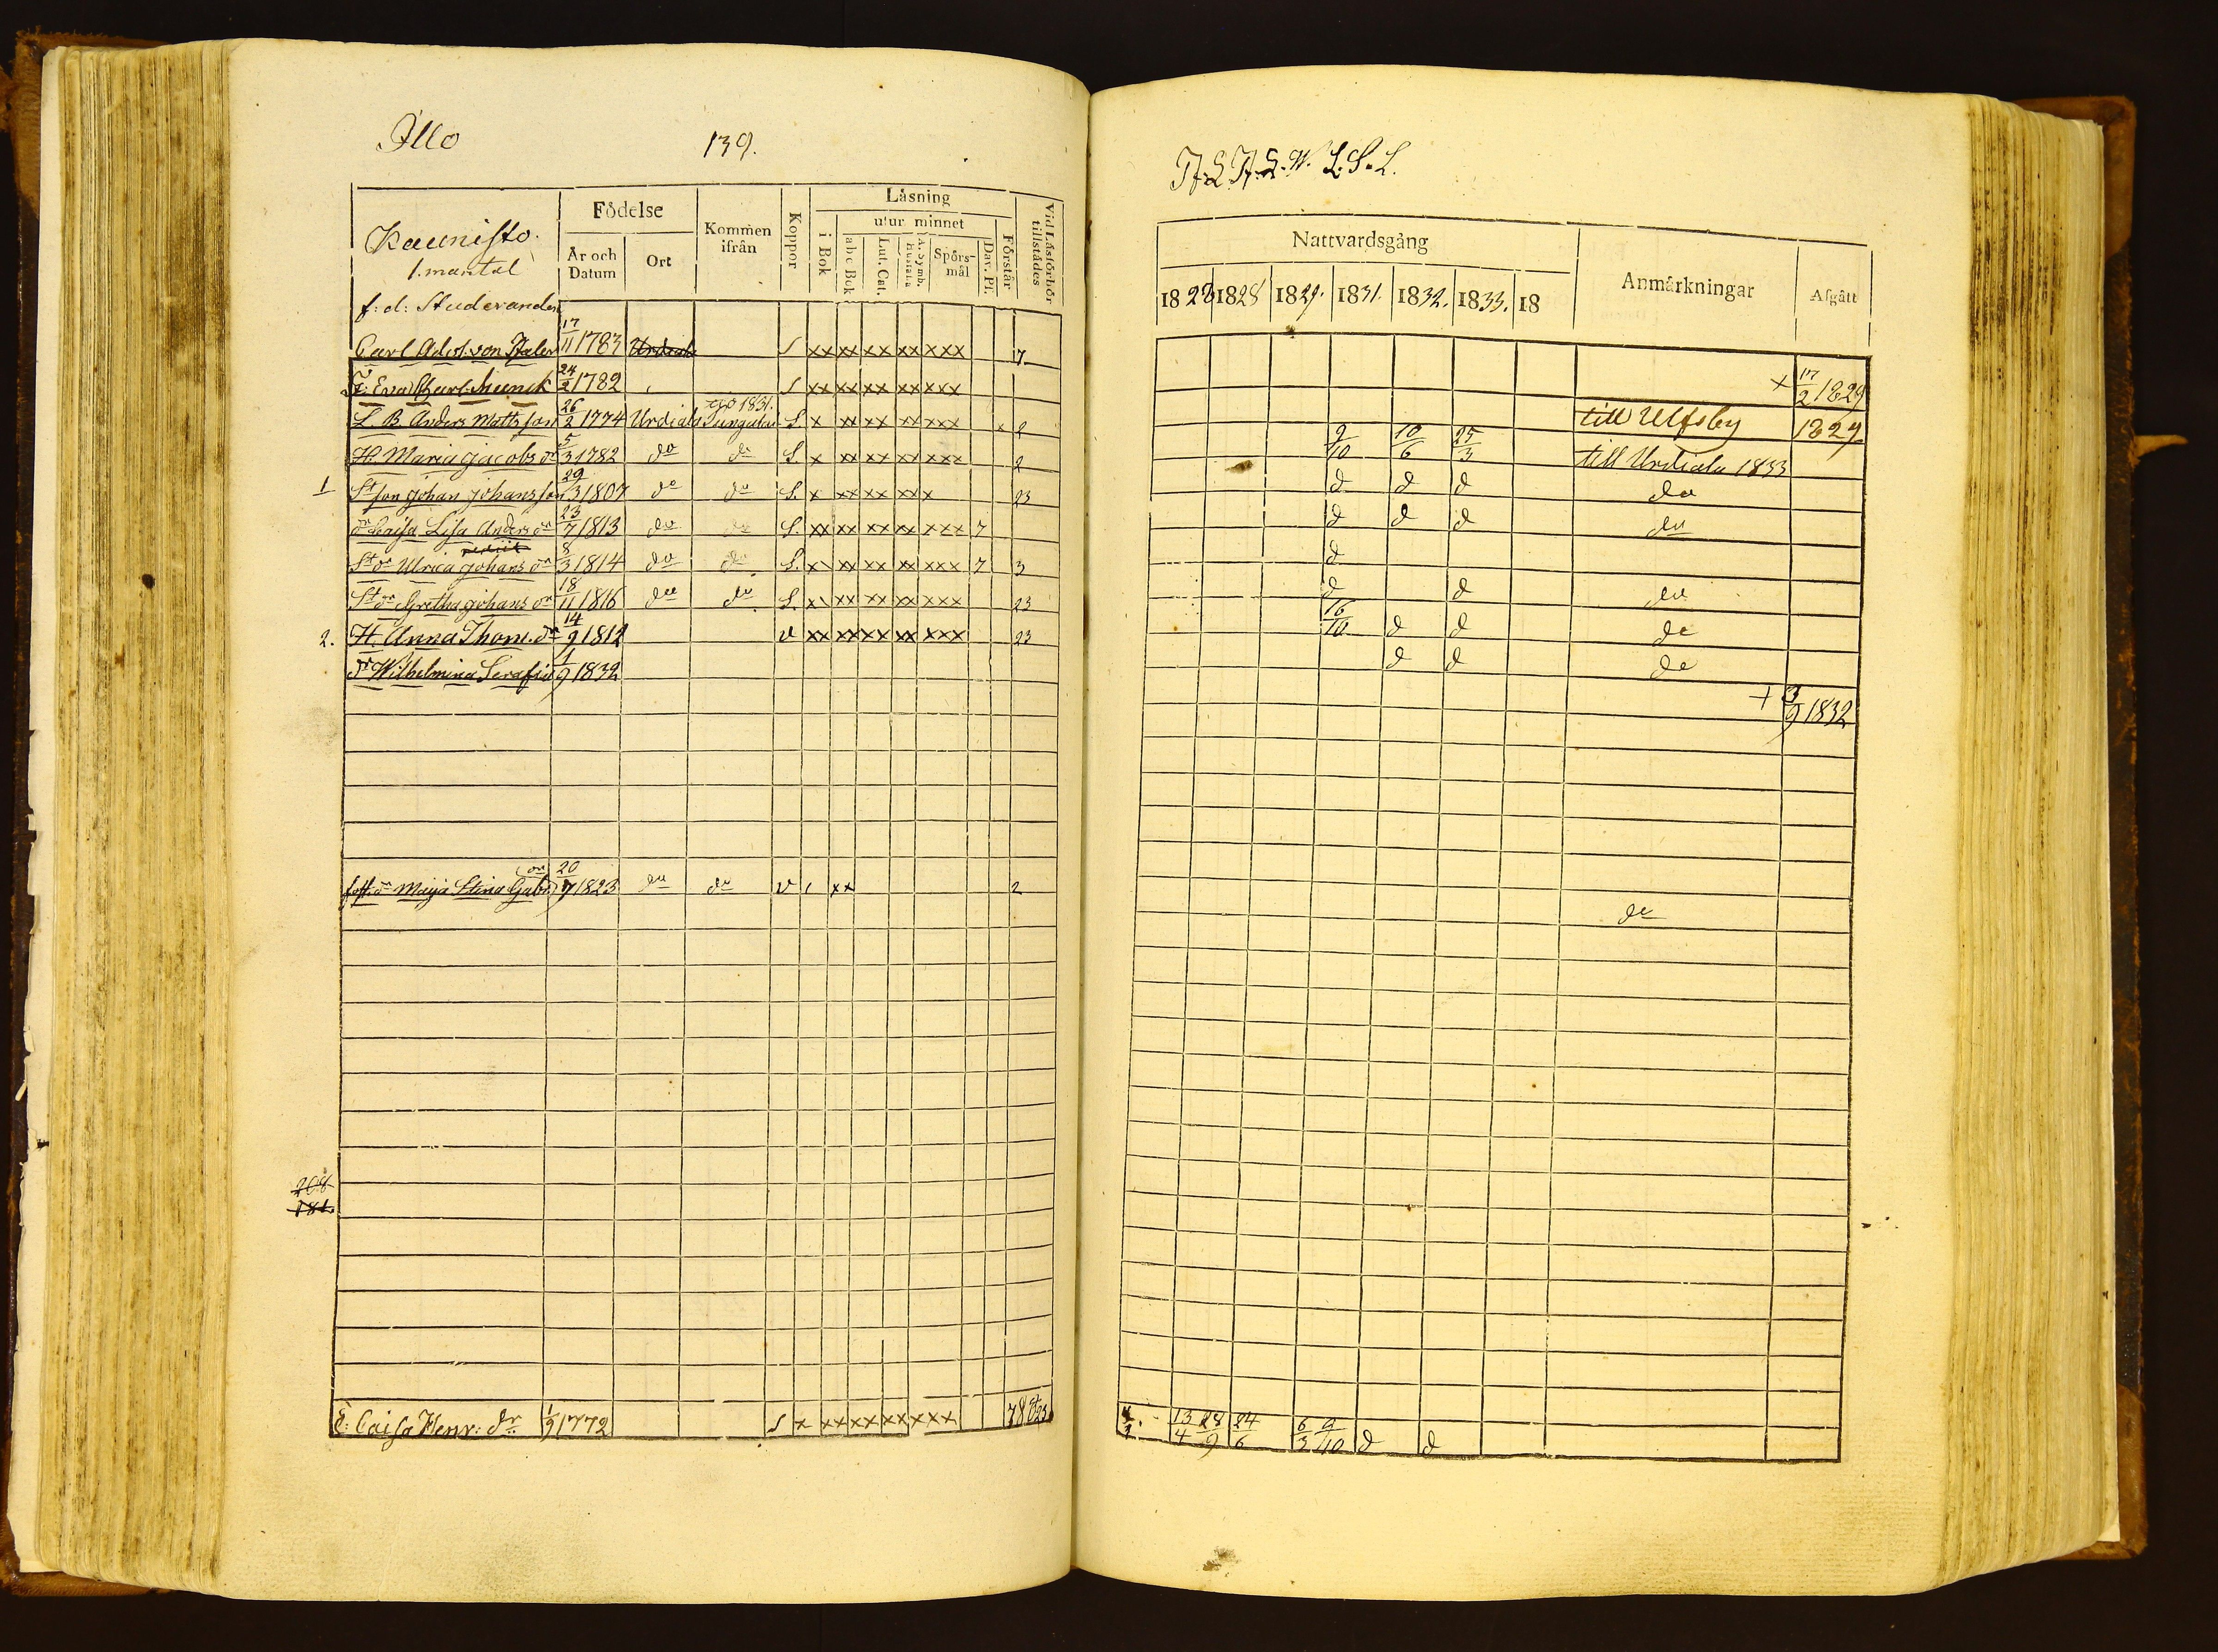 Illo 139.
Kaunisto.
1. mantal
Födelse
År och Datum
Ort
Kommen ifrån
Koppor
Låsning
i Bok
utur minnet
abc Bok
Lut. Cat.
A. Symb. Hustafla
Spörs-mål
Dav. Ps.
Förstår
Vid Läsförhör tillstädes
f: d: Studeranden
Carl Adol. von 17/11 1783 Urdiala S xx xx xx xx xxx 7
F: Eva Charl. Munck 24/2 1782 S xx xx xx xx xxx
L. B. Anders Matts son 26/2 1774 Urdiala 1831. S. x xx xx xx xxx x 2
H. Maria Jacobs dr 5/3 1782 do do S. x xx xx xx xxx 2
1 St son Johan Johans son 29/3 1807 do do S. x xx xx xx x 23
dr Caisa Lisa Anders dr 23/7 1813 do do S. xx xx xx xx xxx 7
rediit
St dr Ulrica Johans dr 8/3 1814 do do S. x xx xx xx xxx 7 3
St dr Gretha Johans dr 18/11 1816 do do S. x xx xx xx xxx 23
2. H. Anna Thom. dr 14/9 1812 v xx xx xx xx xxx 23
dr Wilhelmina Serafia 1/9 1832
fost. dr Maija Stina Gabr. dr 20/7 1823 do do v xx 2
208
181.
E: Caisa Henr: dr 1/9 1772 S x xx xx xx xxx 78 23
L. S. L.
Nattvardsgång
Anmärkningar
Afgått
1828 1828 1829. 1831. 1832. 1833. 18
+ 17/2 1829
till Ulfsby 1829
9/10 10/6 25/3 till Urdiala 1833
d d d do
d d d do
d
d d do
16/10 d d do
d d do
+ 3/9 1832
do
13/4 28/9 24/6 6/3 9/10 d d